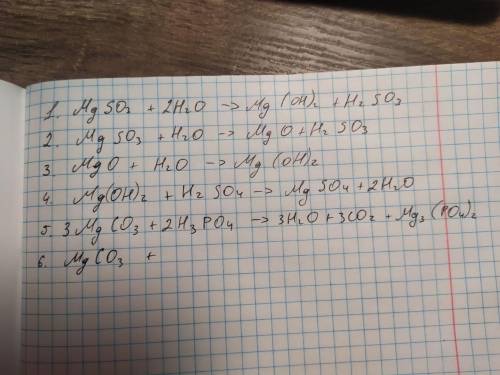 1. MgSO3 + 2H2O -> Mg(OH)2 + H2SO3
2. MgSO3 + H2O -> MgO + H2SO3
3. MgO + H2O -> Mg(OH)2
4. Mg(OH)2 + H2SO4 -> MgSO4 + 2H2O
5. 3MgCO3 + 2H3PO4 -> 3H2O + 3CO2 + Mg3(PO4)2
6. MgCO3 +